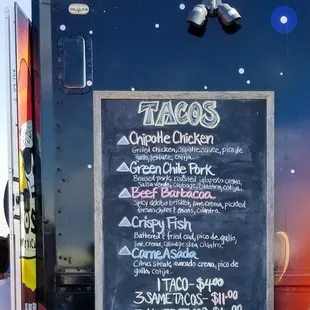 TACOS
Chipotle Chicken
Grilled chicken, chipotle sauce, pico de
gallo, lettuce, cotija.
Green Chile Pork
Braised pork, roasted jalapeno crema,
Salsa verde, cabbage, cilantro, cotija.
Beef Barbacoa
Spicy adobo brisket, lime crema, pickled
fresno chilies & onions, cilantro.
Crispy Fish
Battered & fried cod, pico de gallo,
lime crema, cabbage slaw, cilantro.
Carne Asada
Citrus steak, avocado crema, pico de
gallo, cotija.
1 TACO - $4.00
3 SAME TACOS - $11.00